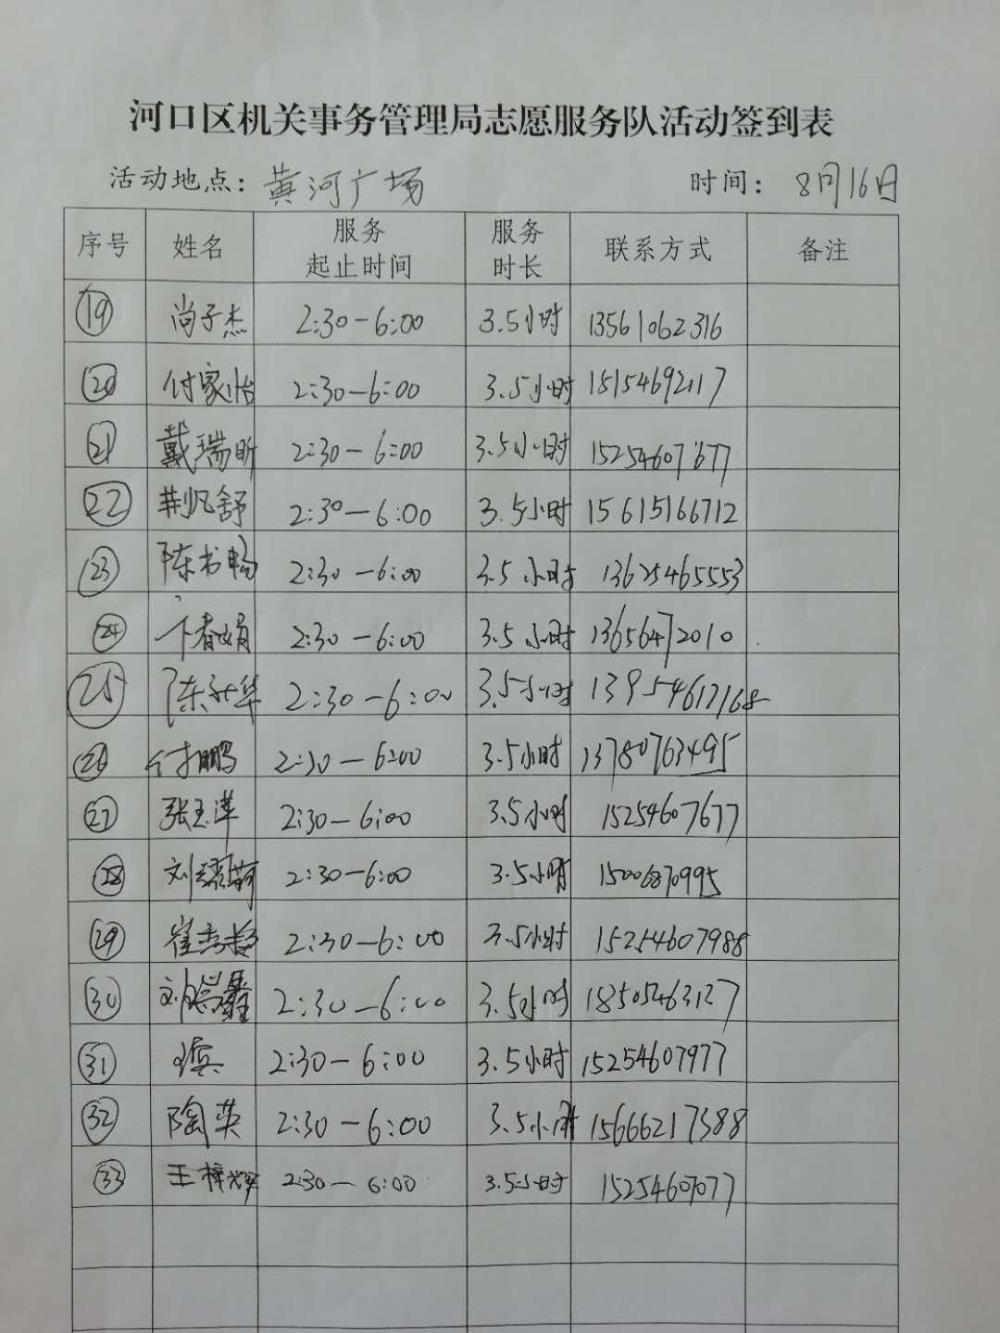 河口区机关事务管理局志愿服务队活动签到表
活动地点：黄河广场 时间：8月16日
序号 姓名 服务起止时间 服务时长 联系方式 备注
19 尚子杰 2:30-6:00 3.5小时 13561062316
20 付家怡 2:30-6:00 3.5小时 15154692117
21 戴瑞昕 2:30-6:00 3.5小时 15254607677
22 荆凡舒 2:30-6:00 3.5小时 15615166712
23 陈书畅 2:30-6:00 3.5小时 13625465553
24 卞春娟 2:30-6:00 3.5小时 13656472010
25 陈 华 2:30-6:00 3.5小时 13954617168
26 付鹏 2:30-6:00 3.5小时 13780763495
27 张玉萍 2:30-6:00 3.5小时 15254607677
28 刘 2:30-6:00 3.5小时 15006870995
29 崔 2:30-6:00 3.5小时 15254607988
30 刘 鑫 2:30-6:00 3.5小时 18505463127
31 2:30-6:00 3.5小时 15254607977
32 陶英 2:30-6:00 3.5小时 15666217388
33 王梓辉 2:30-6:00 3.5小时 15254607077